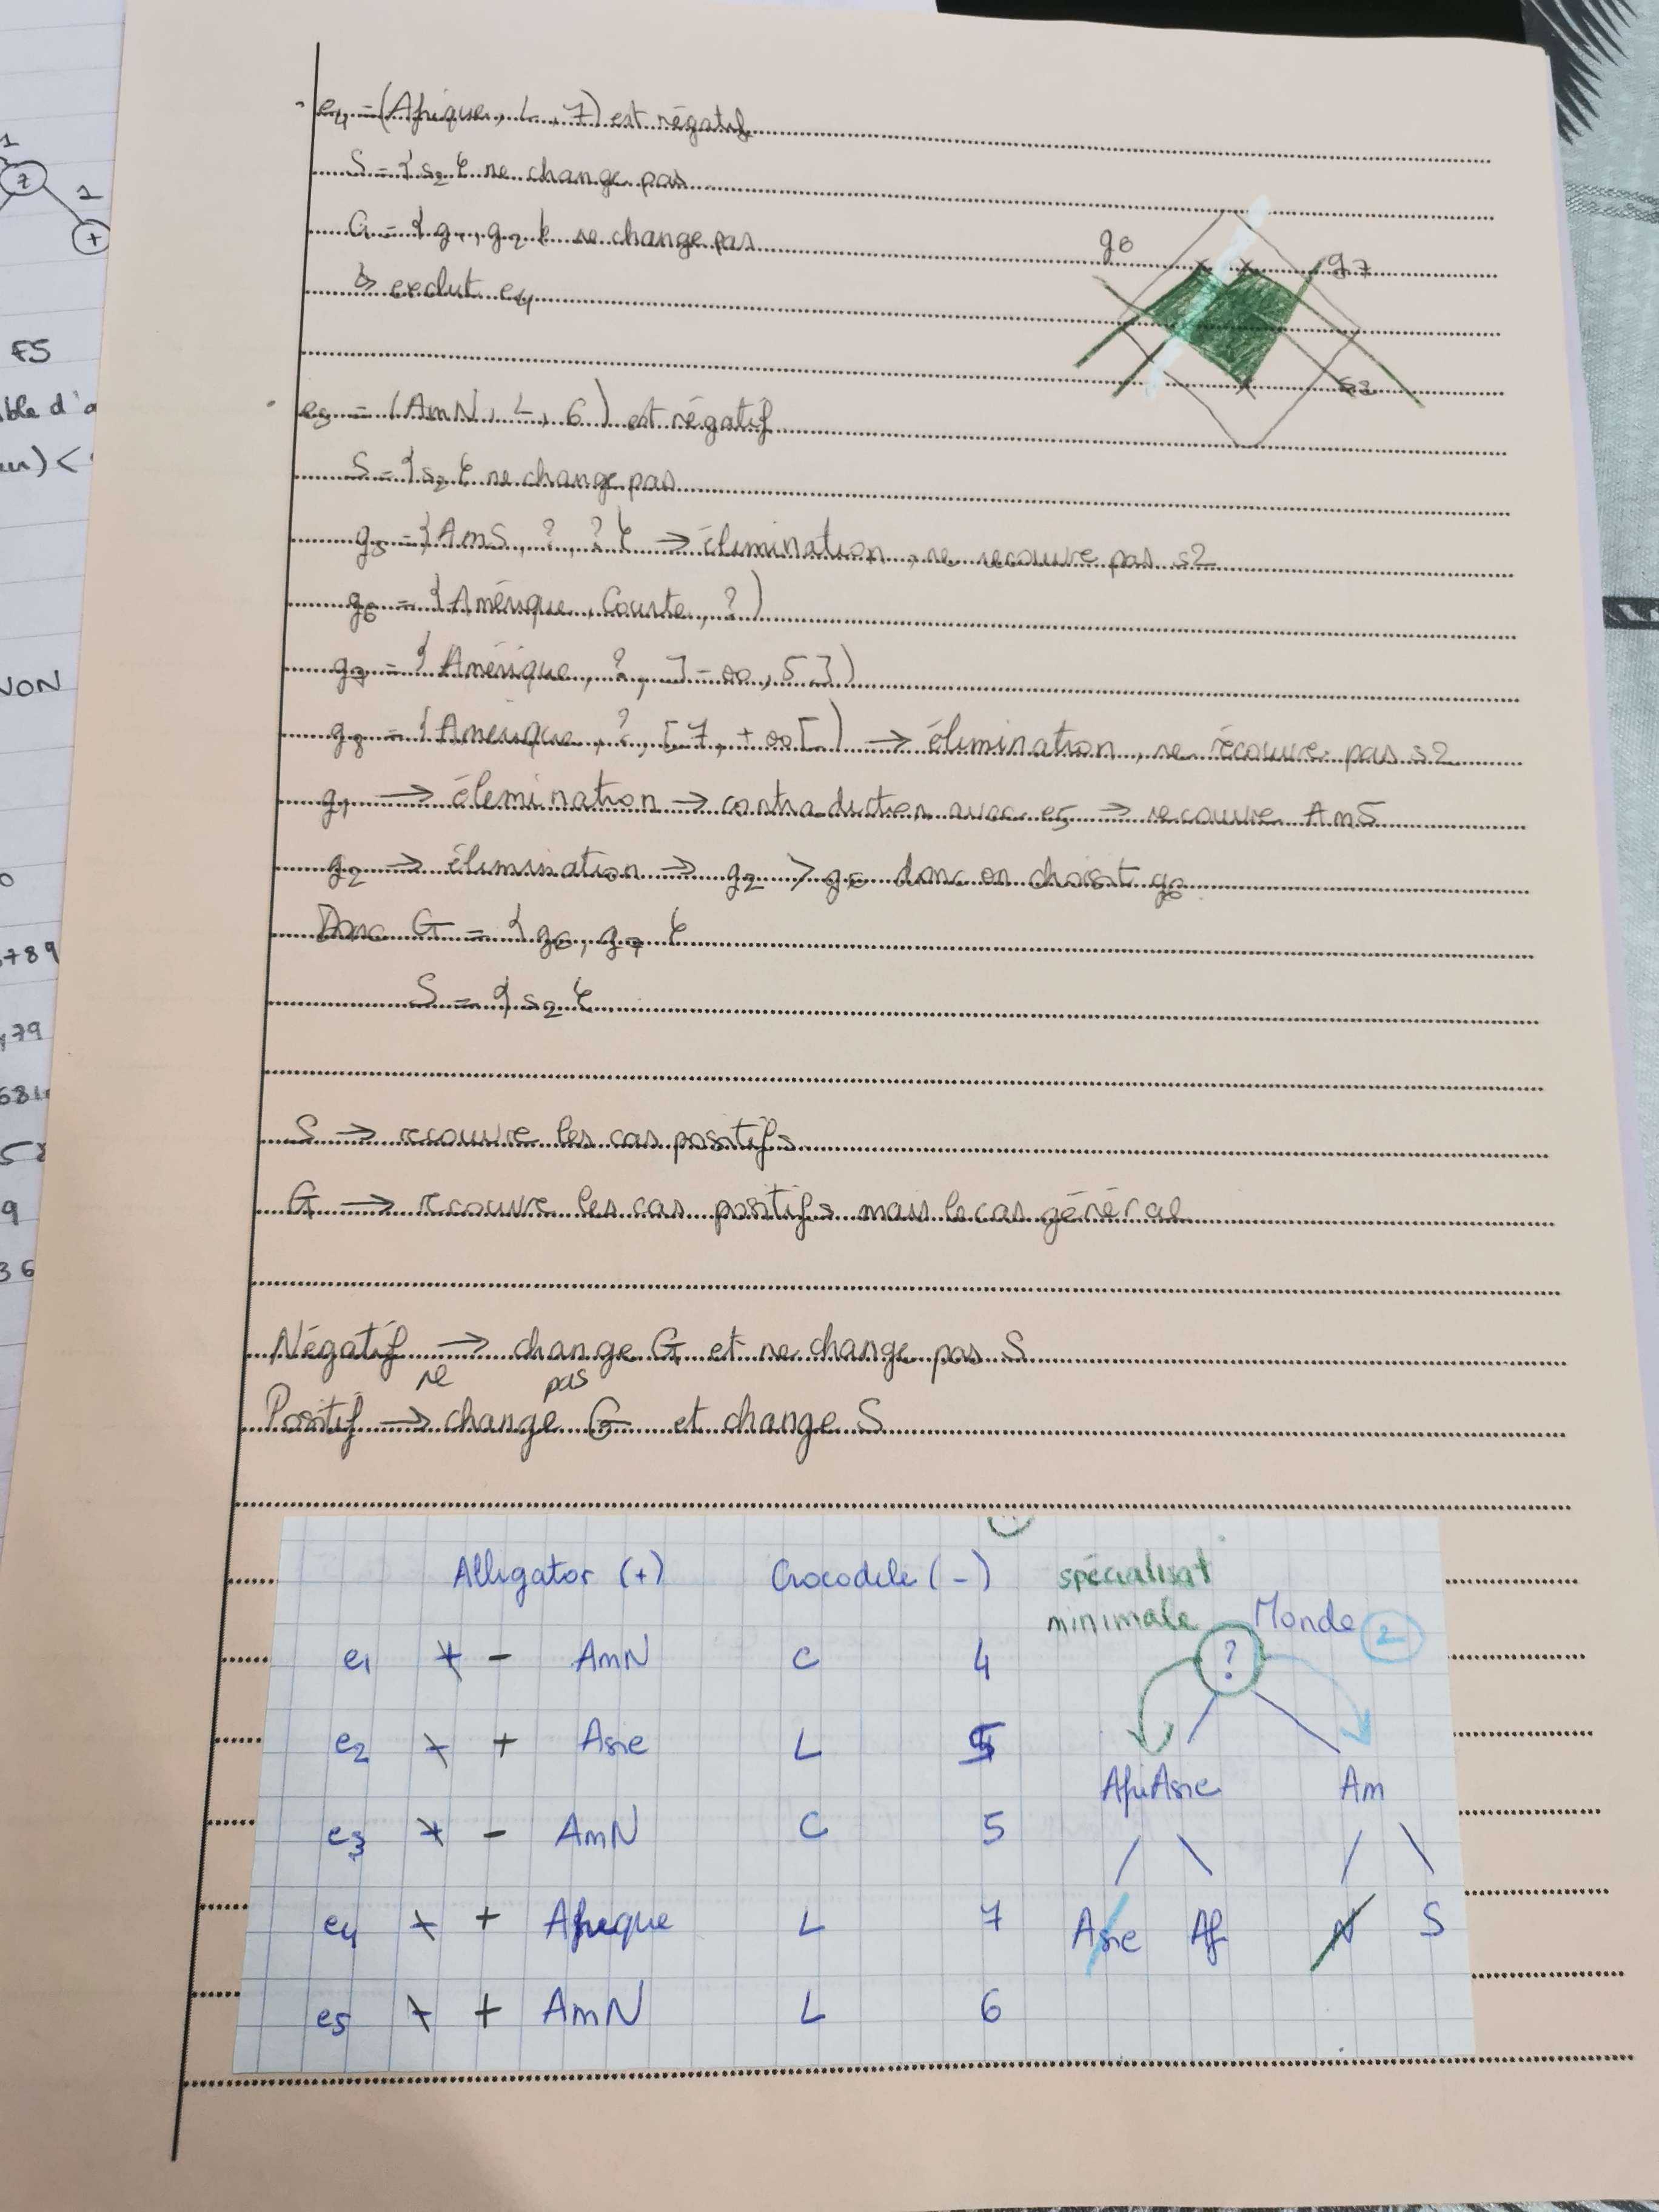 e4 = (Afrique, L, 7) est négatif
S = {s2} ne change pas
G = {g1, g2} ne change pas
↳ exclut e4
g6
g7
s2
e5 = (AmN, L, 6) est négatif
S = {s2} ne change pas
g5 = {AmS, ?, ?} → élimination, ne recouvre pas s2
g6 = {Amérique, Courte, ?)
g7 = {Amérique, ?, ]-∞, 5])
g8 = {Amérique, ?, [7, +∞[) → élimination, ne récouvre pas s2
g1 → élemination → contradiction avec e5 → recouvre AmS
g2 → élimination → g2 > g6 donc on choisit g6
Donc G = {g6, g7}
S = {s2}
S → recouvre les cas positifs
G → recouvre les cas positifs mais le cas général
Négatif → change G et ne change pas S
ne pas
Positif → change G et change S
Alligator (+) Crocodile (-) spécialisat minimale
Monde 2
?
e1 + - AmN C 4
e2 + Asie L 5
AfriAsie Am
e3 - AmN C 5
e4 + Afrique L 7
Asie Af N S
e5 + AmN L 6
FS
ble d'a
NON
789
,79
9
36
1
7
2
+